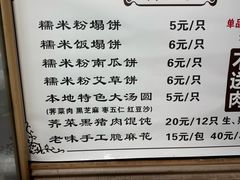 糯米粉塌饼 5元/只 单品
糯米饭塌饼 6元/只
糯米粉南瓜饼 6元/只
糯米粉艾草饼 6元/只
本地特色大汤圆 5元/只
(荠菜肉 黑芝麻 枣五仁 红豆沙)
荠菜黑猪肉馄饨 20元/12只 生、
老味手工脆麻花 15元/包 40元/